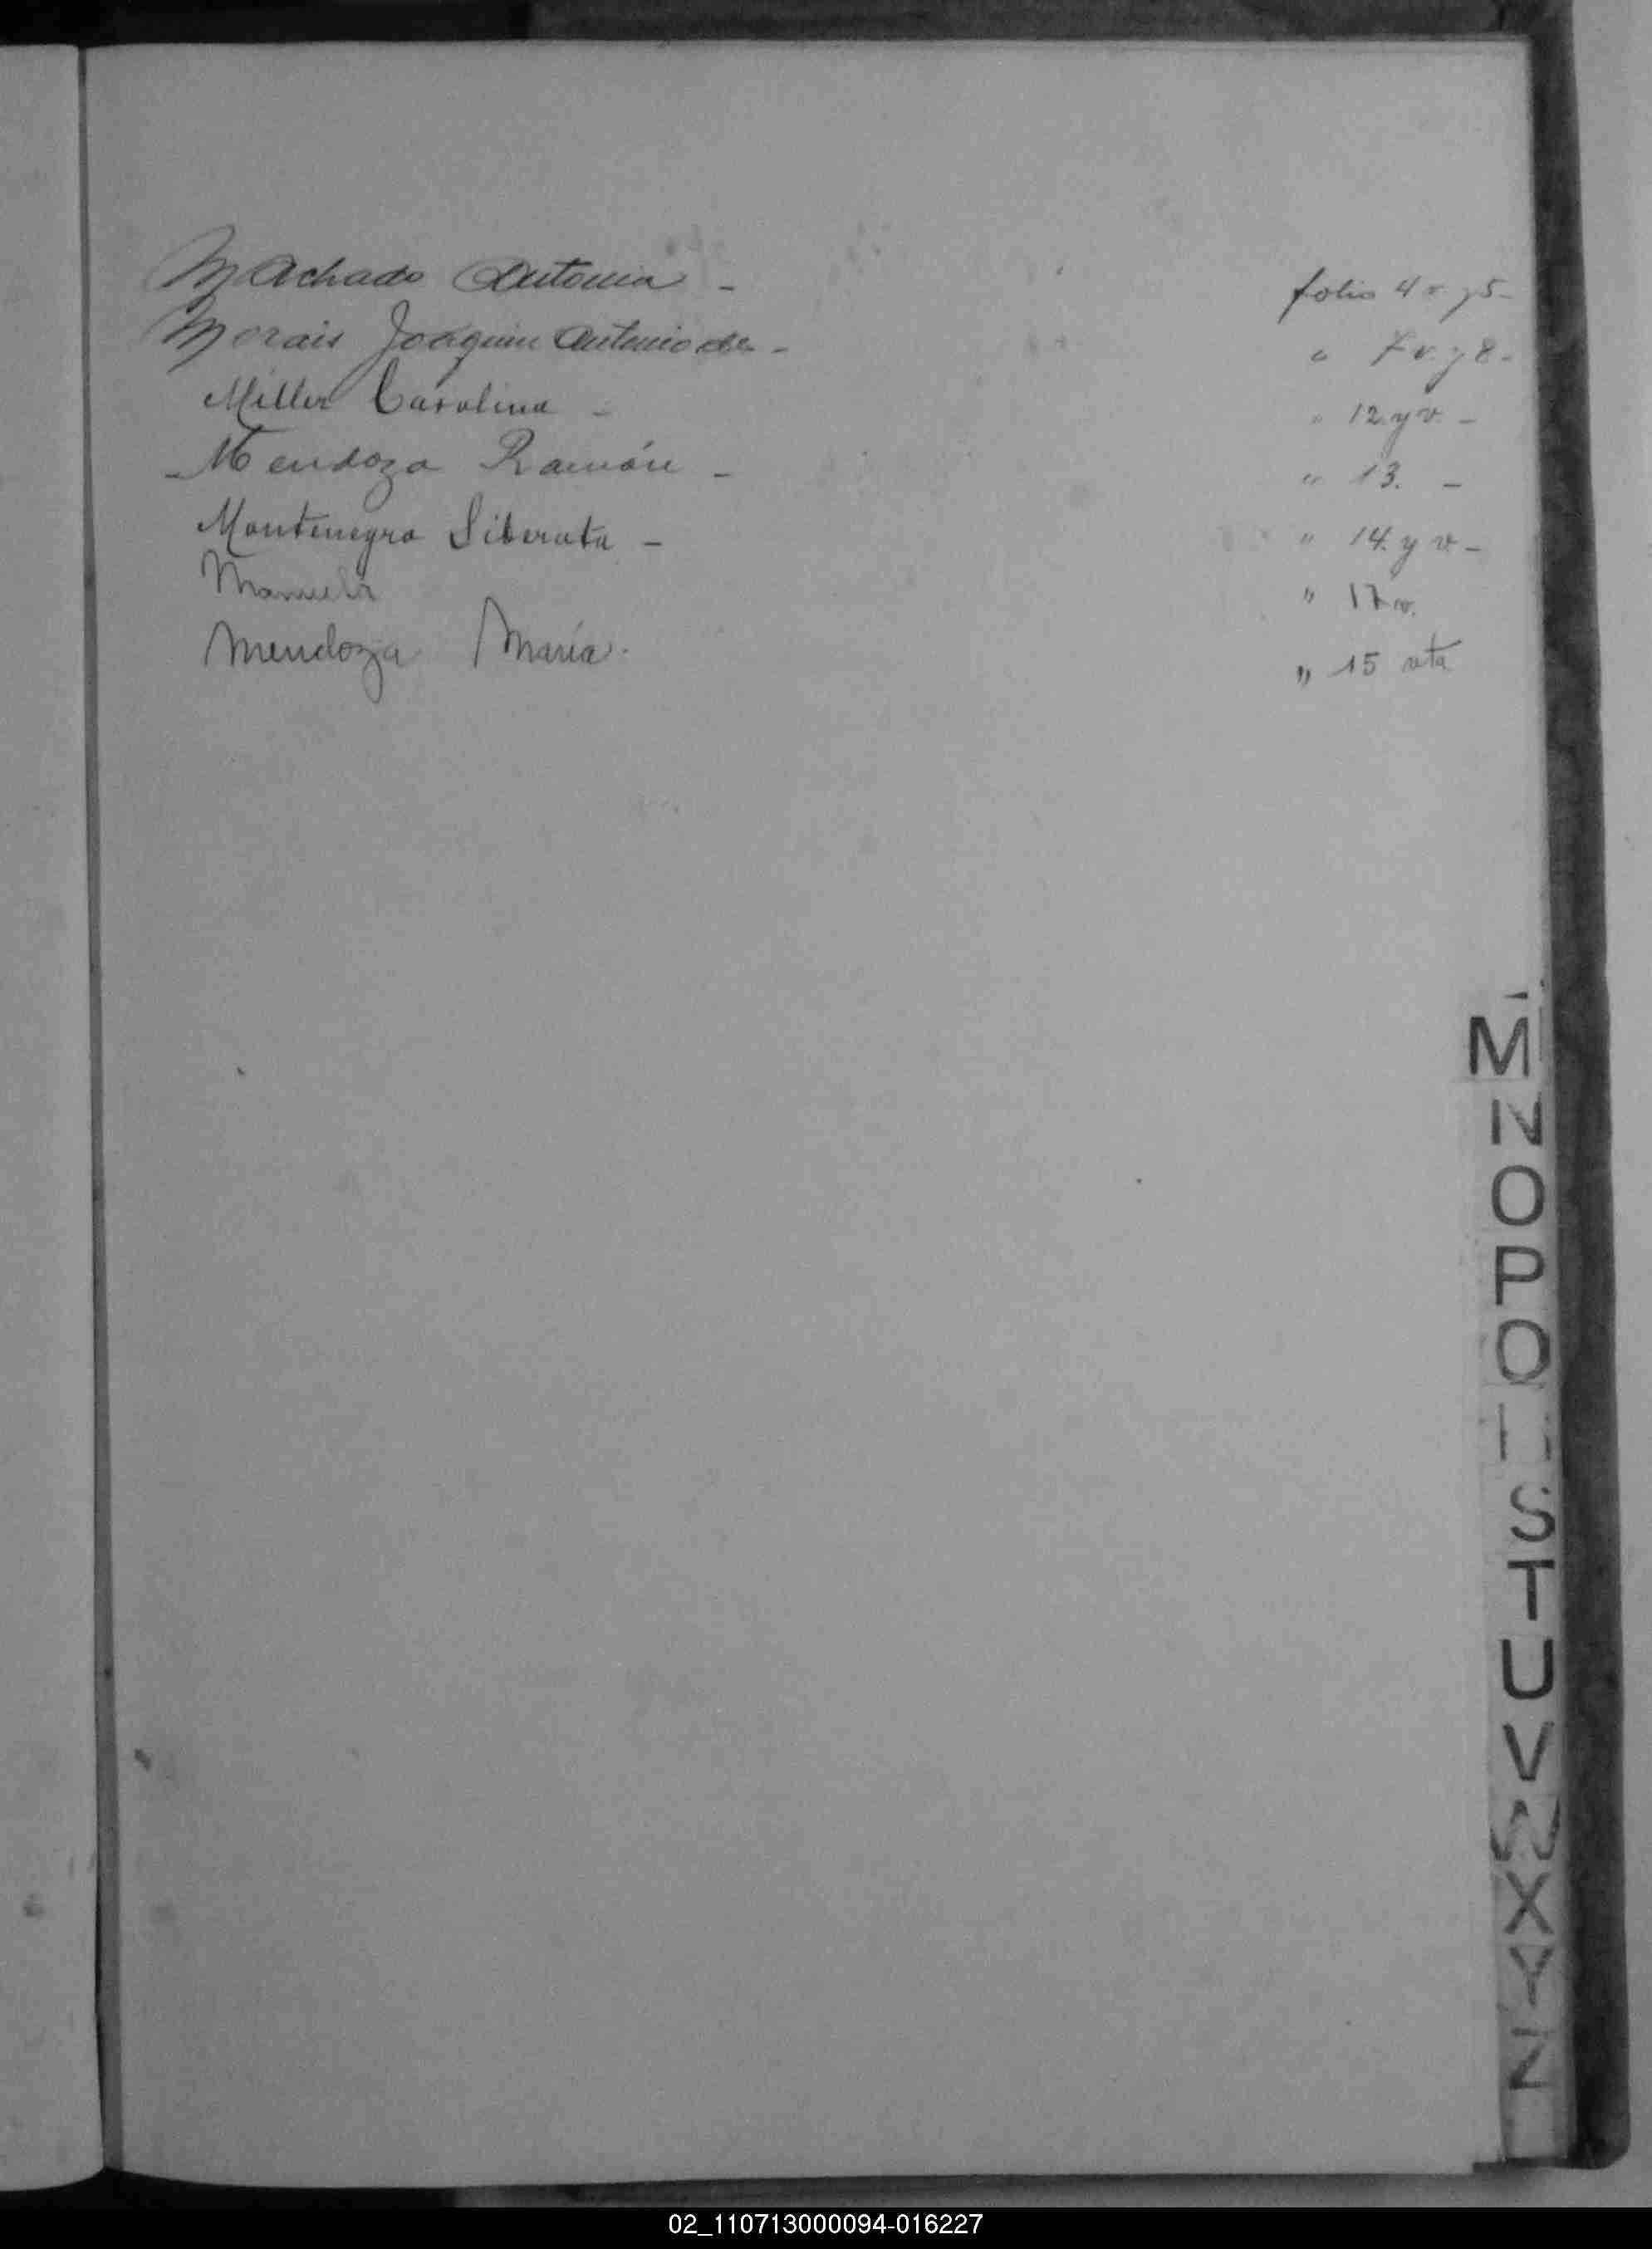 Machado Antonia - folio 4 v. y 5-
Morais Joaquin Antonio de - " 7 v. y 8-
Miller Carolina - " 12 y v. -
Mendoza Ramón - " 13. -
Montenegro Liberata - " 14. y v -
Manuela " 17 v.
Mendoza María. " 15 vta
M
N
O
P
Q
S
T
U
V
W
X
Y
Z
02_110713000094-016227